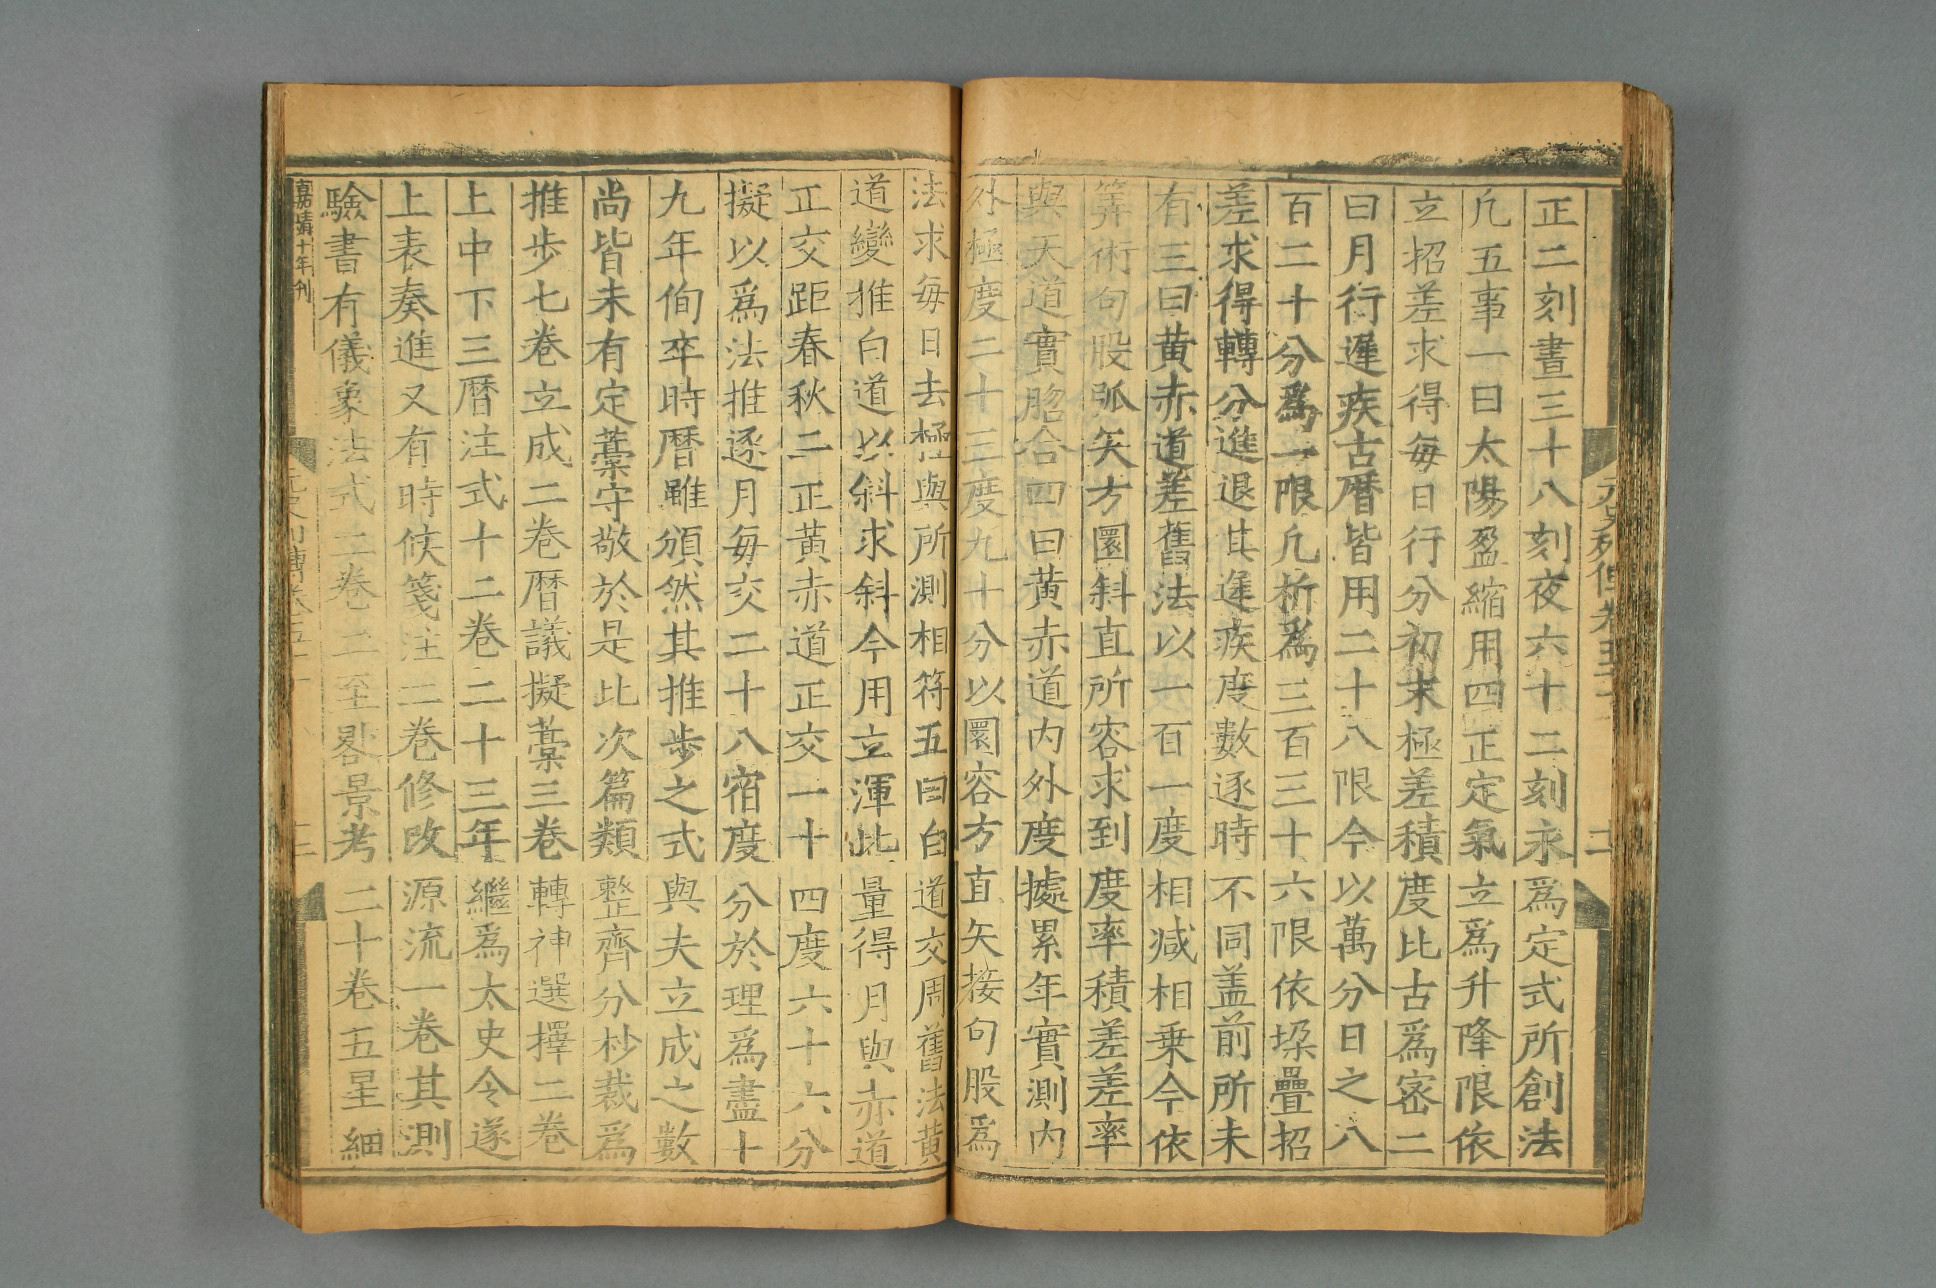 正二刻晝三十八刻夜六十二刻永爲定式所創法
凢五事一曰太陽盈縮用四正定氣立爲升降限依
立招差求得每日行分初末極差積度比古爲宻二
曰月行遲疾古曆皆用二十八限今以萬分日之八
百二十分爲一限凢析爲三百三十六限依垜疊招
差求得轉分進退其遲疾度數逐時不同盖前所未
有三曰黄赤道差舊法以一百一度相減相乗今依
筭術句股弧矢方圜斜直所容求到度率積差差率
與天道實脗合四曰黄赤道内外度據累年實測内
外極度二十三度九十分以圜容方直矢接句股爲
法求每日去極與所測相符五曰白道交周舊法黄
道變推白道以斜求斜今用立渾比量得月與赤道
正交距春秋二正黄赤道正交一十四度六十六分
擬以爲法推逐月每交二十八宿度分於理爲盡十
九年恂卒時曆雖頒然其推歩之式與夫立成之數
尚皆未有定藁守敬於是比次篇類整齊分杪裁爲
推歩七卷立成二卷曆議擬藁三卷轉神選擇二卷
上中下三曆注式十二卷二十三年繼爲太史令遂
上表奏進又有時候箋注二卷修改源流一卷其測
驗書有儀象法式二卷二至晷景考二十卷五星細
嘉靖十年刋
元史列傳卷五十